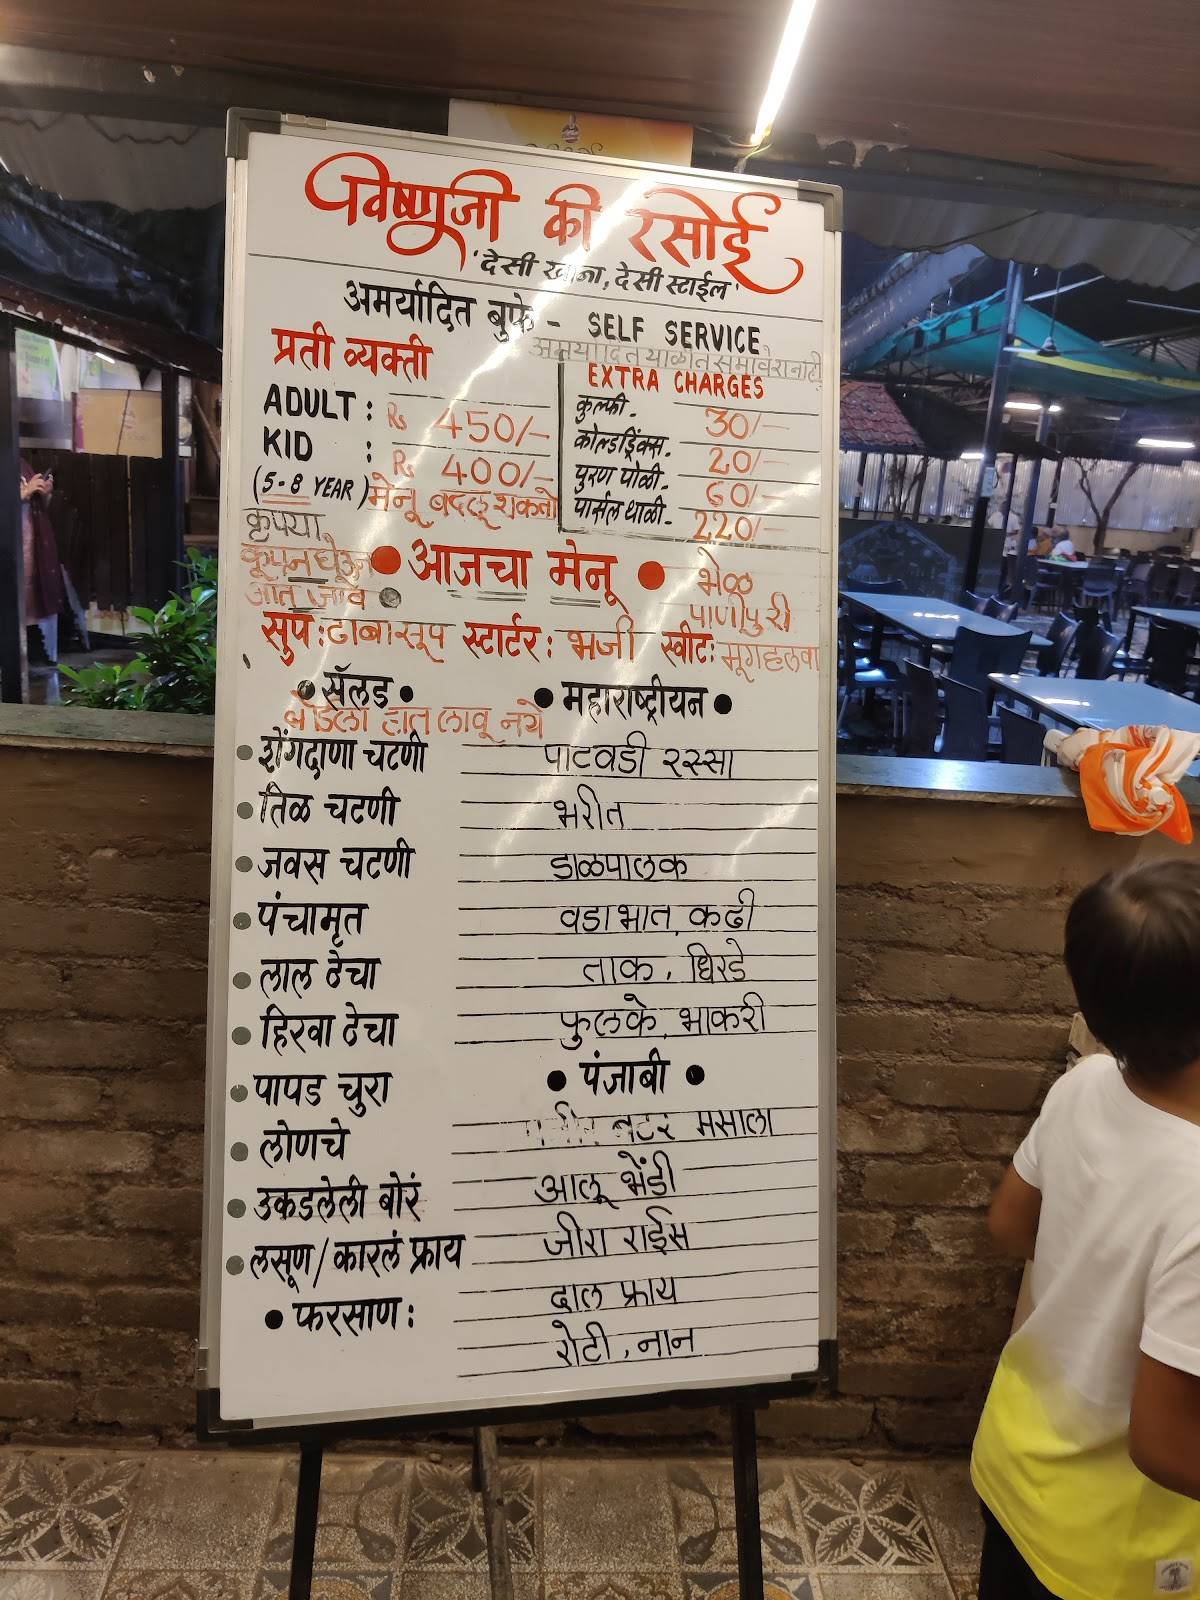 विष्णुजी की रसोई
'देसी खाना, देसी स्टाईल'
अमर्यादित बुफे - SELF SERVICE
प्रती व्यक्ती
ADULT : Rs 450/-
KID : Rs 400/-
(5-8 YEAR) मेनू बदलू शकतो
अमर्यादित थाळीत समावेश नाही
EXTRA CHARGES
कुल्फी - 30/-
कोल्डड्रिंक्स - 20/-
पुरण पोळी - 60/-
पार्सल थाळी - 220/-
कृपया
कूपन घेऊन
आत जावे
● आजचा मेनू ●
भेळ
पाणीपुरी
सुप : ढाबा सूप स्टार्टर : भजी स्वीट : मूगहलवा
● सॅलड ●
बोर्डला हात लावू नये
● शेंगदाणा चटणी
● तिळ चटणी
● जवस चटणी
● पंचामृत
● लाल ठेचा
● हिरवा ठेचा
● पापड चुरा
● लोणचे
● उकडलेली बोरं
● लसूण/कारलं फ्राय
● फरसाण :
● महाराष्ट्रीयन ●
पाटवडी रस्सा
भरीत
डाळपालक
वडाभात, कढी
ताक, धिरडे
फुलके, भाकरी
● पंजाबी ●
बटर मसाला
आलू भेंडी
जीरा राईस
दाल फ्राय
रोटी, नान